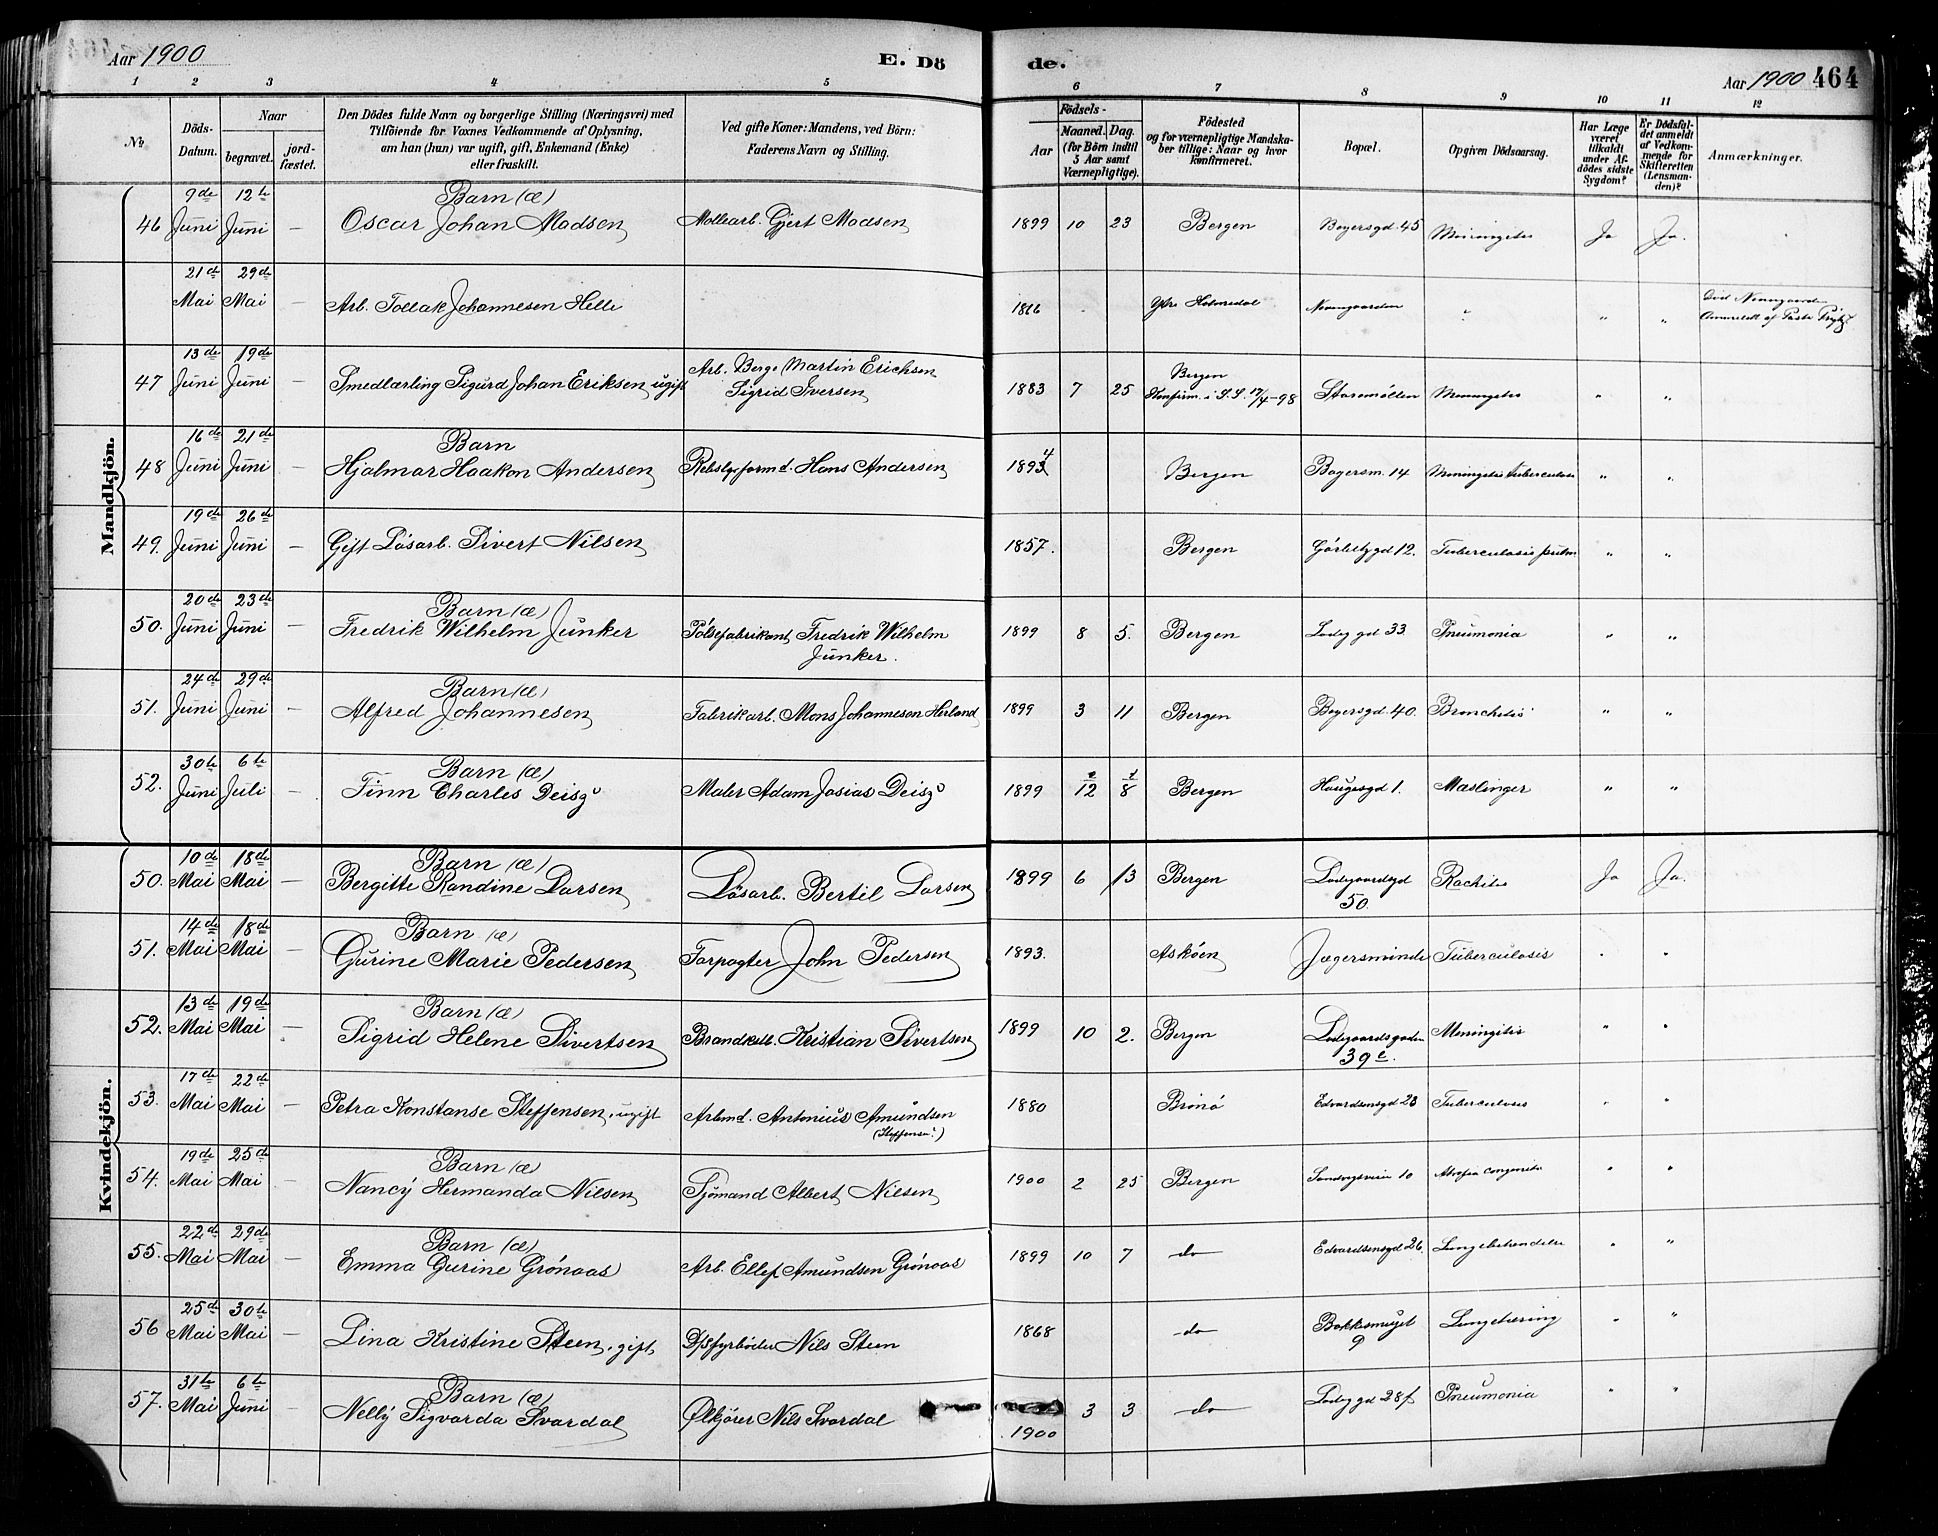 Aar 1900 E. Dö de. Aar 1900 464
1 2 3 4 5 6 7 8 9 10 11 12
No Döds-Datum. Naar begravet. jord-fæstet. Den Dödes fulde Navn og borgerlige Stilling (Næringsvei) med Tilföiende for Voxnes Vedkommende af Oplysning, om han (hun) var ugift, gift, Enkemand (Enke) eller fraskilt. Ved gifte Koner: Mandens, ved Börn: Faderens Navn og Stilling. Födsels- Aar Maaned. Dag. (for Börn indtil 5 Aar samt Værnepligtige). Födested og for værnepligtige Mandskaber tillige: Naar og hvor konfirmeret. Bopæl. Opgiven Dödsaarsag. Har Læge været tilkaldt under Afdödes sidste Sygdom? Er Dödsfaldet anmeldt af Vedkommende for Skifteretten (Lensmanden)? Anmærkninger.
Mandkjön.
46 9de Juni 12te Juni — Barn (æ) Oscar Johan Madsen Mollearb. Gjert Madsen 1899 10 23 Bergen Bøyersgd. 45 Meningitis Ja Ja.
21de Mai 29de Mai — Arb. Tollak Johannesen Helle 1866 Ytre Holmedal Neevengaarden " " "
47 13de Juni 19de Juni — Smedlærling Sigurd Johan Eriksen ugift Arb. Berge Martin Erichsen Sigrid Iversen 1883 7 25 Bergen Konfirm. i S.S. 17/4-98 Storemøllen Meningitis " "
48 16de Juni 21de Juni — Barn Hjalmar Haakon Andersen Rebslgeformd. Hans Andersen 1894 Bergen Bøyersm. 14 Meningitis Tuberculosis " "
49. 19de Juni 26de Juni — Gift Løsarb. Sivert Nilsen 1857. Bergen 12. Tuberculosis pulm " "
50. 20de Juni 23de Juni — Barn (æ) Fredrik Wilhelm Junker Pølsefabrikant Fredrik Wilhelm Junker. 1899 8 5. Bergen Ladeg gd 33. Pneumonia " "
51. 24de Juni 29de Juni — Barn (æ) Alfred Johannesen Fabrikarb. Mons Johannesen Herland 1899 3 11 Bergen Bøyersgd. 40. Bronchitis " "
52. 30te Juni 6te Juli — Barn (æ) Finn Charles Deisz Maler Adam Josias Deisz 1899 12 8 Bergen Haugesgd 1. Mæslinger " "
Kvindekjön.
50. 10de Mai 18de Mai — Barn (æ) Bergitte Randine Larsen Løsarb. Bertil Larsen 1899 6 13 Bergen Ladegaardsgd 50. Rachitis Ja Ja.
51. 14de Mai 18de Mai — Barn (æ) Gurine Marie Pedersen Forpagter John Pedersen 1893. Askøen Jægersminde Tuberculosis " "
52. 13de Mai 19de Mai — Barn (æ) Sigrid Helene Sivertsen Brandkstb. Kristian Sivertsen 1899 10 2. Bergen Ladegaardsgaden 39c. Meningitis " "
53. 17de Mai 22de Mai — Petra Konstanse Steffensen, ugift Arbmd. Antonius Amundsen (Steffensen?) 1880 Brønø Edvardsensgd 23 Tuberculosis " "
54. 19de Mai 25de Mai Barn (æ) Nancy Hermanda Nilsen Sjömand Albert Nilsen 1900 2 25 Bergen Sandvigsveien 10 Atrofia congenita " "
55. 22de Mai 29de Mai — Barn (æ) Emma Gurine Grönaas Arb. Ellef Amundsen Grönaas 1899 10 7 do Edvardsensgd 26. Lungebetændelse " "
56 25de Mai 30te Mai — Lina Kristine Steen, gift, D/Sfyrbøder Nils Steen 1868 do 9 Lungetæring " "
57. 31te Mai 6te Juni — Barn (æ) Nelly Sigvarda Svardal Ølkjører Nils Svardal 1900 3 3 do Ladeg gd 28f Pneumonia " "